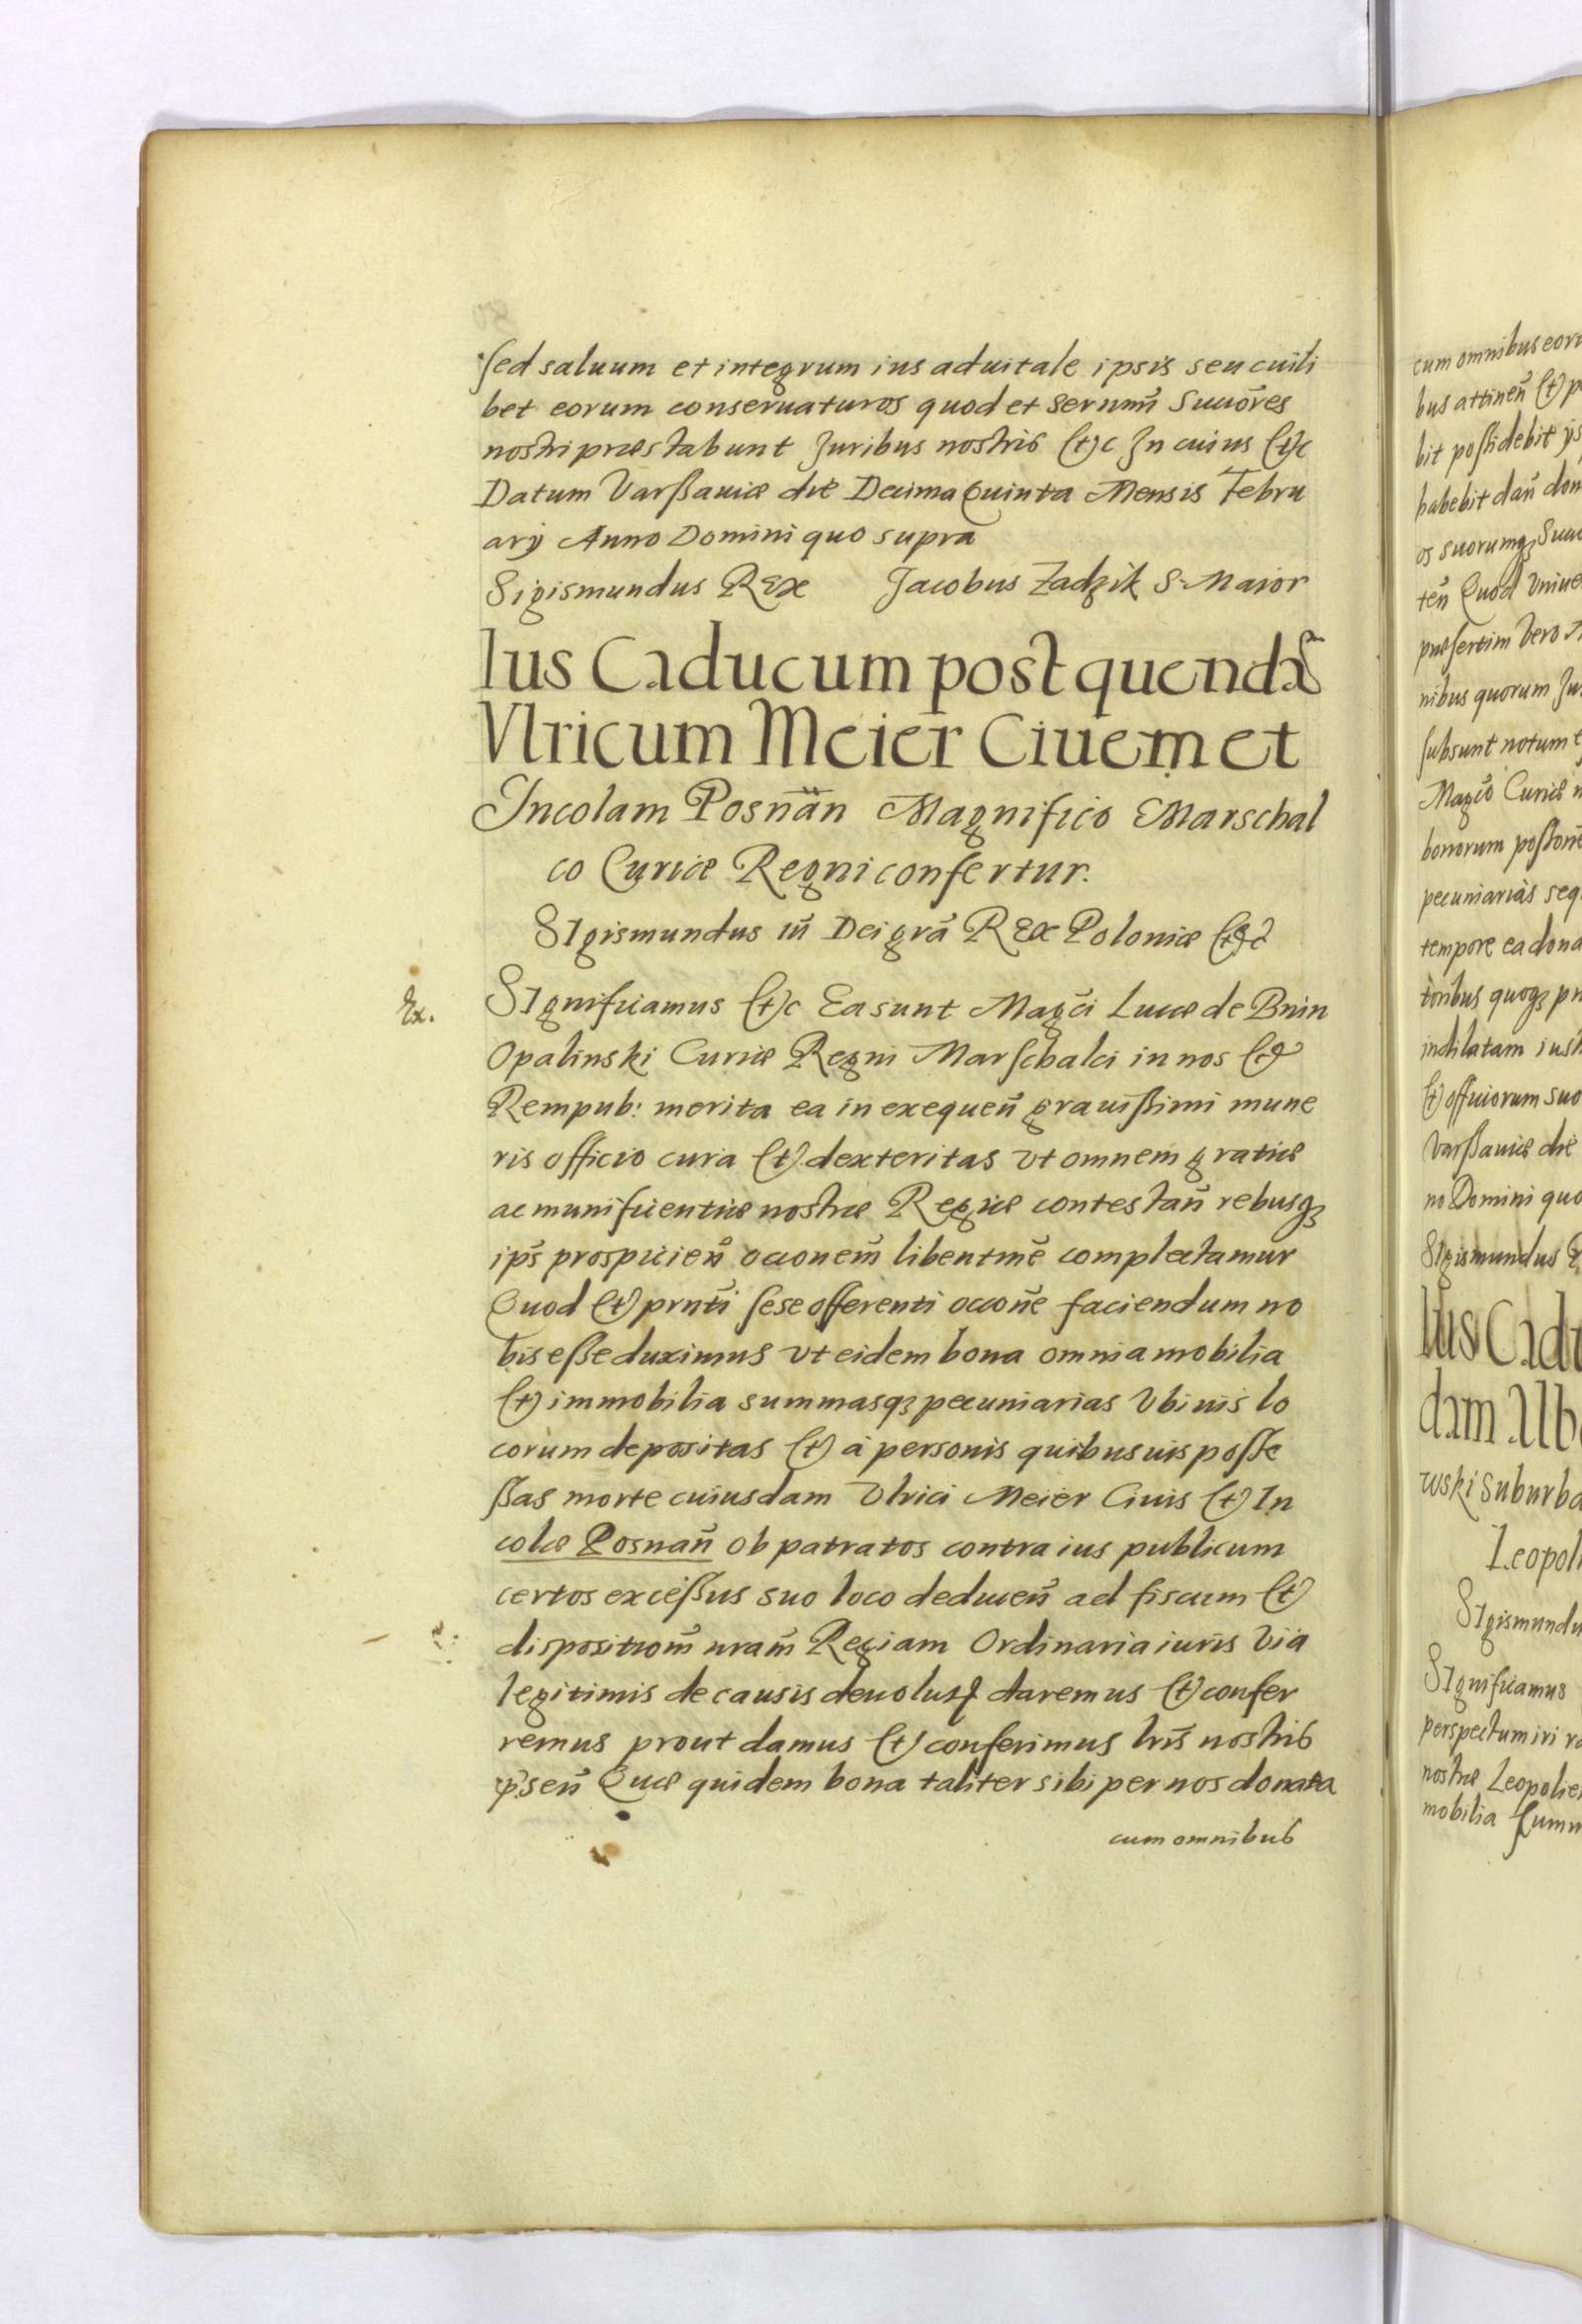 sed saluum et integrum ius aduitale ipsis seu cuili
bet eorum conseruaturos quod et Sernm̃i Succõres
nostri præstabunt Juribus nostris (et)c In cuius (et)c
Datum Varßauiæ die Decima Quinta Mensis Febru
arij Anno Domini quo supra
Sigismundus REX Jacobus Zadzik S. Maior
Ius Caducum post quendã
Vlricum Meier Ciuem et
Incolam Posnãn Magnifico Marschal
co Curiæ Regni confertur.
SIgismundus iii Dei grã REX Poloniæ (et)c
Ex.
SIgnificamus (et)c Ea sunt Magci Lucæ de Bnin
Opalinski Curiæ Regni Marschalci in nos et
Rempub: merita ea in exequeñ grauißimi mune
ris officio cura (et) dexteritas vt omnem gratiæ
ac munificentiæ nostræ Regiæ contestañ rebusqꝫ
ips̃ prospicieñ occonem̃ libentmẽ complectamur
Quod (et) prnti sese offerenti occoñe faciendum no
bis eße duximus vt eidem bona omnia mobilia
(et) immobilia summasqꝫ pecuniarias Vbiuis lo
corum depositas (et) à personis quibusuis poße
ßas morte cuiusdam Vlrici Meier Ciuis (et) In
colæ Posnañ ob patratos contra ius publicum
certos exceßus suo loco deduceñ ad fiscum (et)
dispositiom̃ nram̃ Regiam Ordinaria iuris via
legitimis de causis deuolutꝭ daremus (et) confer
remus prout damus (et) conferimus lris̃ nostris
p̃señ Quæ quidem bona taliter sibi per nos donata
cum omnibus
cum omnibus eoru
bus attineñ (et) p
bit poßidebit
habebit dañ don
os suorumqꝫ Succ
teñ Quod Vniue
præsertim Vero
nibus quorum
subsunt notum
Magco Curiæ
bonorum poßonẽ
pecuniarias seq
tempore ea dona
toribus quoqꝫ
indilatam iust
(et) officiorum suo
Varßauiæ die
no Domini quo
SIgismundus R
Ius Cadu
dam Alb
wski Suburba
Leopol
SIgismundu
SIgnificamus
perspectum iri
nostræ Leopolie
mobilia Summ